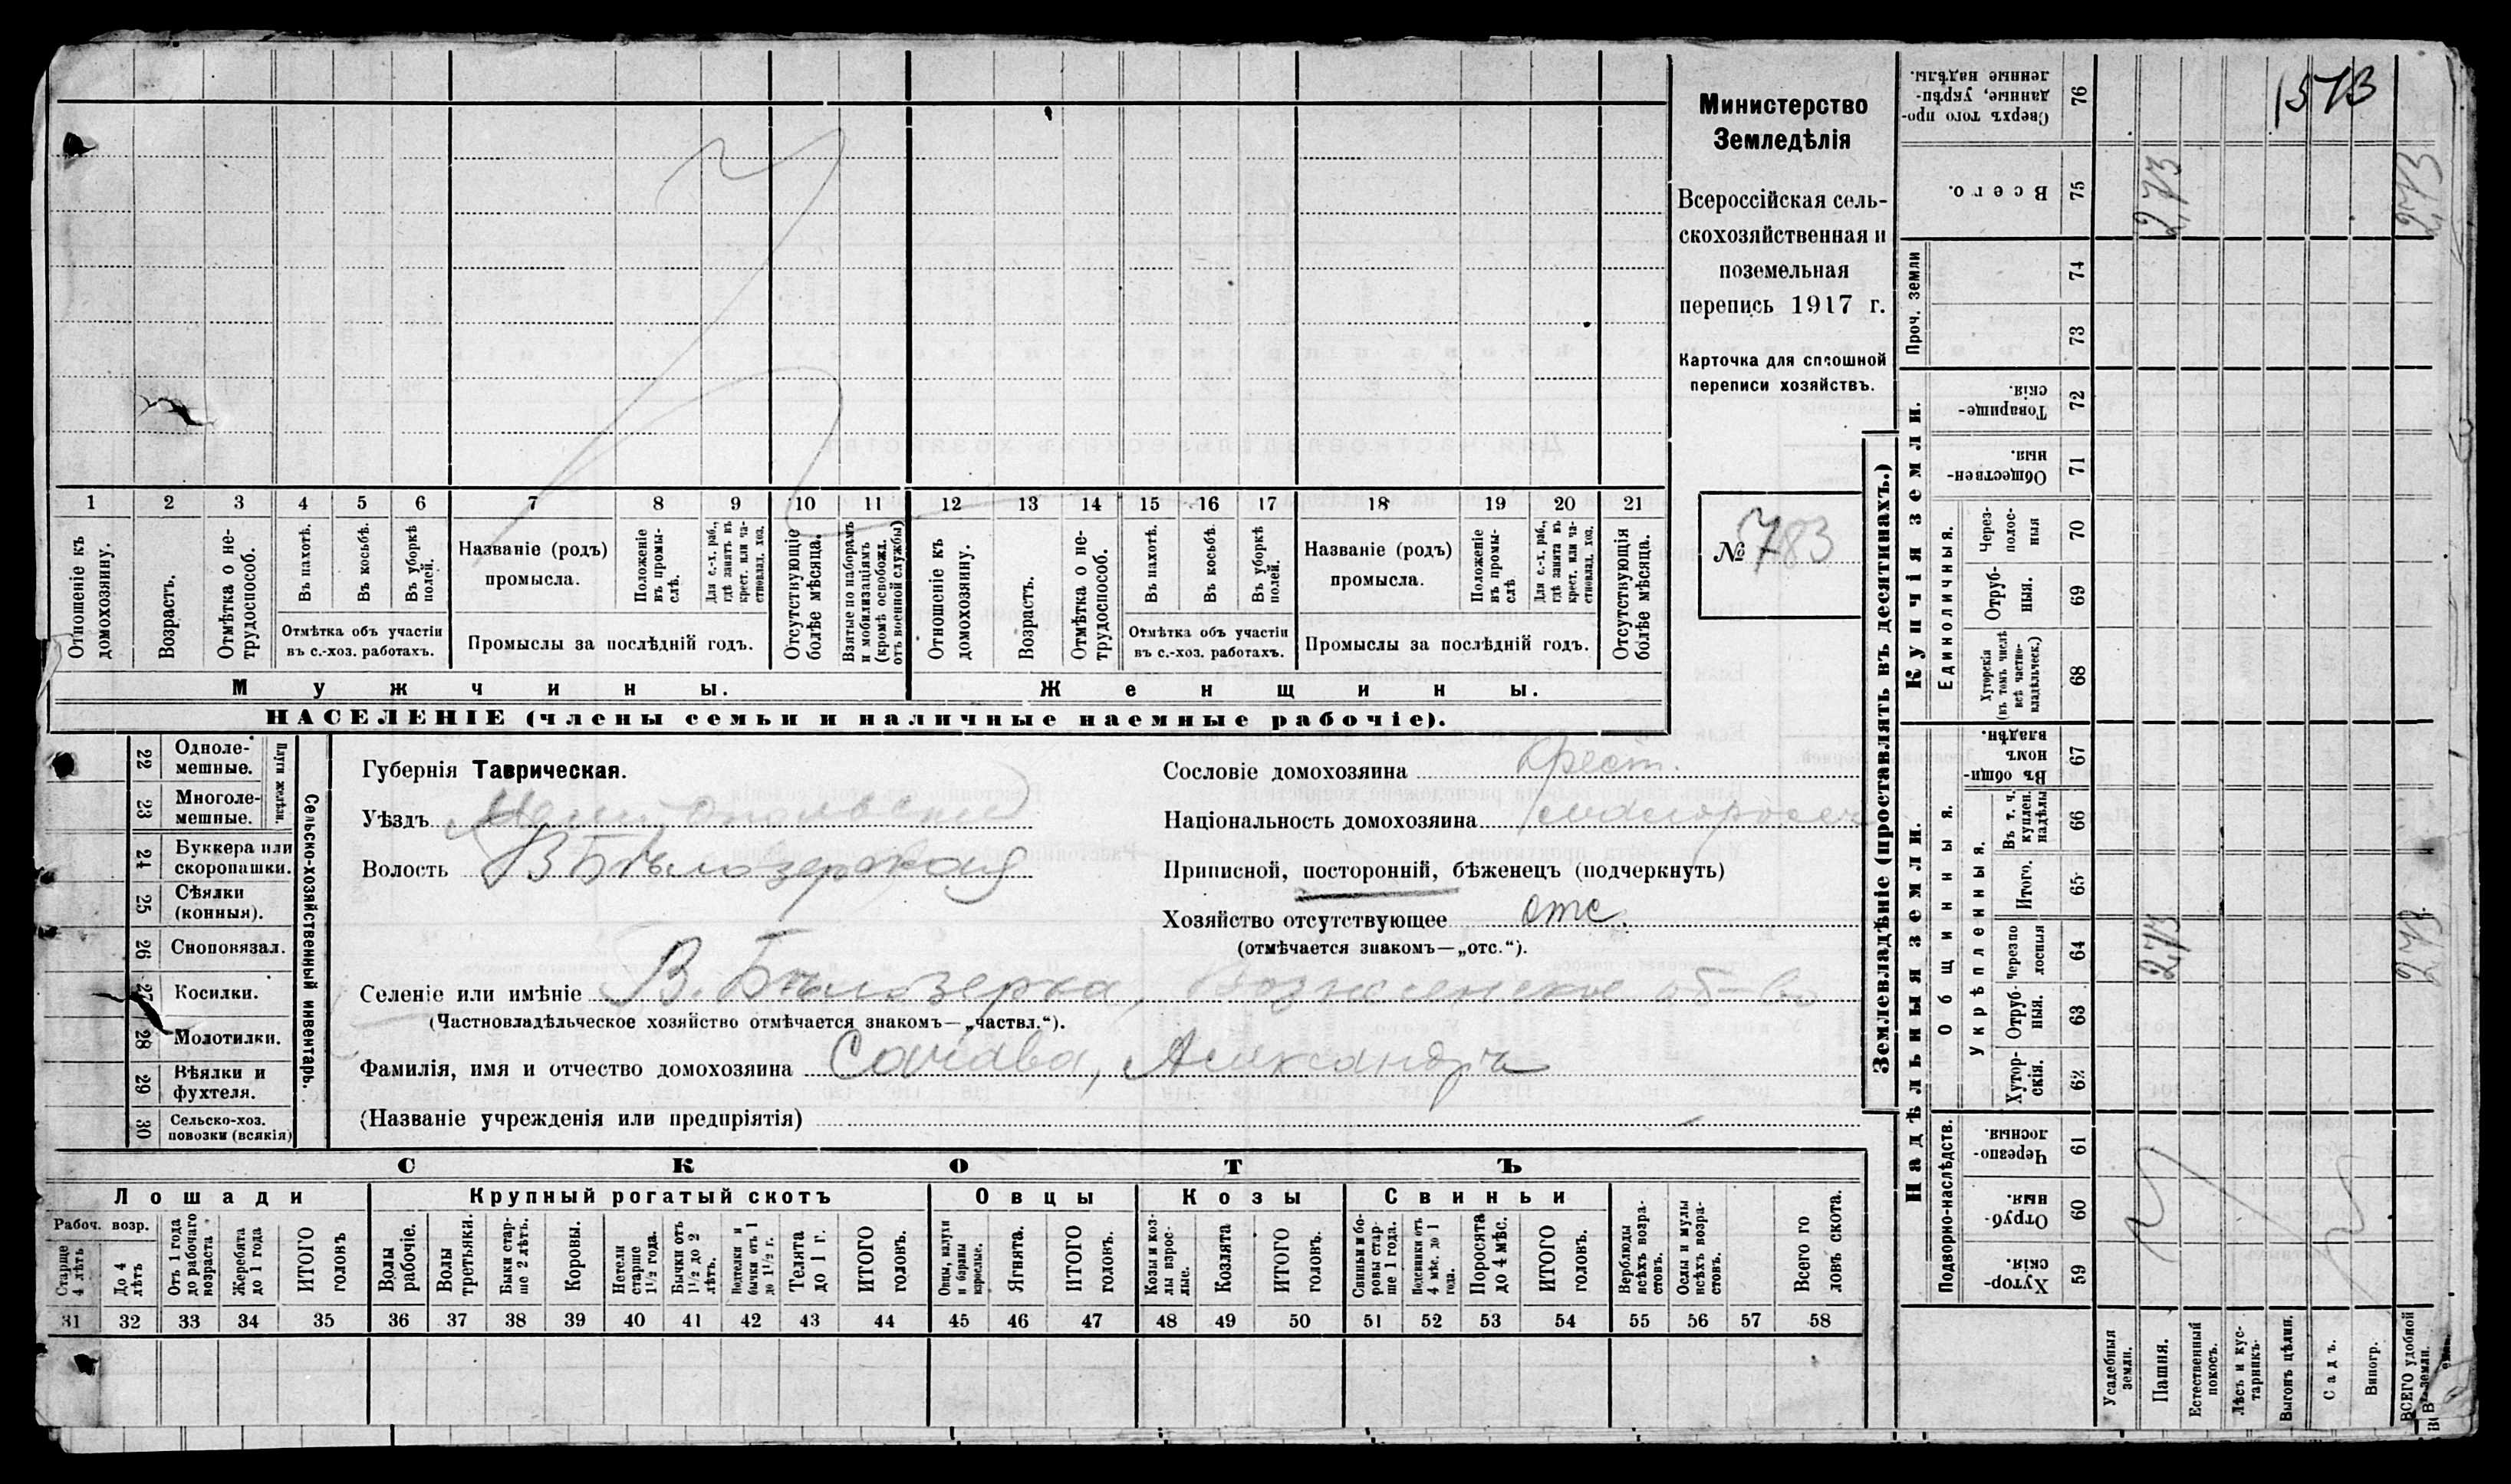 1573
Министерство
Земледѣлія
Всероссійская сель-
скохозяйственная и
поземельная
перепись 1917 г.
Карточка для сплошной
переписи хозяйствъ.
№ 783
1 2 3 4 5 6 7 8 9 10 11 12 13 14 15 16 17 18 19 20 21
Отношеніе къ домохозяину.
Возрастъ.
Отмѣтка о не-трудоспособ.
Въ пахотѣ.
Въ косьбѣ.
Въ уборкѣ полей.
Отмѣтка объ участіи
въ с.-хоз. работахъ.
Названіе (родъ)
промысла.
Положеніе въ промы-слѣ.
Для с.-х. раб., гдѣ занятъ въ крест. или ча-стновлад. хоз.
Промыслы за послѣдній годъ.
Отсутствующіе болѣе мѣсяца.
Взятые по наборамъ и мобилизаціямъ (кромѣ освобожд. отъ военной службы)
Отношеніе къ домохозяину.
Возрастъ.
Отмѣтка о не-трудоспособ.
Въ пахотѣ.
Въ косьбѣ.
Въ уборкѣ полей.
Отмѣтка объ участіи
въ с.-хоз. работахъ.
Названіе (родъ)
промысла.
Положеніе въ промы-слѣ
Для с.-х. раб., гдѣ занята въ крест. или ча-стновлад. хоз.
Промыслы за послѣдній годъ.
Отсутствующія болѣе мѣсяца.
Мужчины.
Женщины.
НАСЕЛЕНІЕ (члены семьи и наличные наемные рабочіе).
Сельско-хозяйственный инвентарь.
Плуги желѣзн.
22 Одноле-мешные.
23 Многоле-мешные.
24 Буккера или скоропашки.
25 Сѣялки (конныя).
26 Сноповязал.
27 Косилки.
28 Молотилки.
29 Вѣялки и фухтеля.
30 Сельско-хоз. повозки (всякія)
Губернія Таврическая.
Уѣздъ Мелитопольскій
Волость В Бѣлозерская
Сословіе домохозяина Крест.
Національность домохозяина малоросс
Приписной, посторонній, бѣженецъ (подчеркнуть)
Хозяйство отсутствующее отс.
(отмѣчается знакомъ—„отс.“).
Селеніе или имѣніе В. Бѣлозерка, Вознесенское об-во
(Частновладѣльческое хозяйство отмѣчается знакомъ—„частвл.“).
Фамилія, имя и отчество домохозяина Сачава, Александръ
(Названіе учрежденія или предпріятія)
СКОТЪ
Лошади
Крупный рогатый скотъ
Овцы
Козы
Свиньи
Рабоч. возр.
Старше 4 лѣтъ
До 4 лѣтъ
Отъ 1 года до рабочаго возраста
Жеребята до 1 года
ИТОГО головъ
Волы рабочіе.
Волы третьяки.
Быки стар-ше 2 лѣтъ.
Коровы.
Нетели старше 1½ года.
Бычки отъ 1½ до 2 лѣтъ.
Подтелки и бычки отъ 1 до 1½ г.
Телята до 1 г.
ИТОГО головъ.
Овцы, валухи и бараны взрослые.
Ягнята.
ИТОГО головъ.
Козы и коз-лы взрос-лые.
Козлята
ИТОГО головъ.
Свиньи и бо-ровы стар-ше 1 года.
Подсвинки отъ 4 мѣс. до 1 года.
Поросята до 4 мѣс.
ИТОГО головъ.
Верблюды всѣхъ возра-стовъ.
Ослы и мулы всѣхъ возра-стовъ.
Всего го ловъ скота.
31 32 33 34 35 36 37 38 39 40 41 42 43 44 45 46 47 48 49 50 51 52 53 54 55 56 57 58
Землевладѣніе (проставлять въ десятинахъ.)
Надѣльныя земли.
Купчія земли.
Проч. земли
Подворно-наслѣдств.
Общинныя.
Укрѣпленныя.
Единоличныя.
76 Сверхъ того про-данные, укрѣп-ленные надѣлы.
75 Всего. 2,73 2,73
74
73
72 Товарище-скія.
71 Обществен-ныя.
70 Через-полос-ныя
69 Отруб-ныя.
68 Хуторскія (въ томъ числѣ всѣ частно-владѣльческ.)
67 Въ общи-номъ владѣн.
66 Въ т. ч. куплен. надѣлы
65 Итого.
64 Черезпо лосныя 2,73 2,73
63 Отруб-ныя.
62 Хутор-скія.
61 Черезпо-лосныя.
60 Отруб-ныя.
59 Хутор-скія.
Усадебныя земли.
Пашня.
Естественный покосъ.
Лѣсъ и кус-тарникъ.
Выгонъ цѣлин.
Садъ.
Виногр.
ВСЕГО удобной земли.